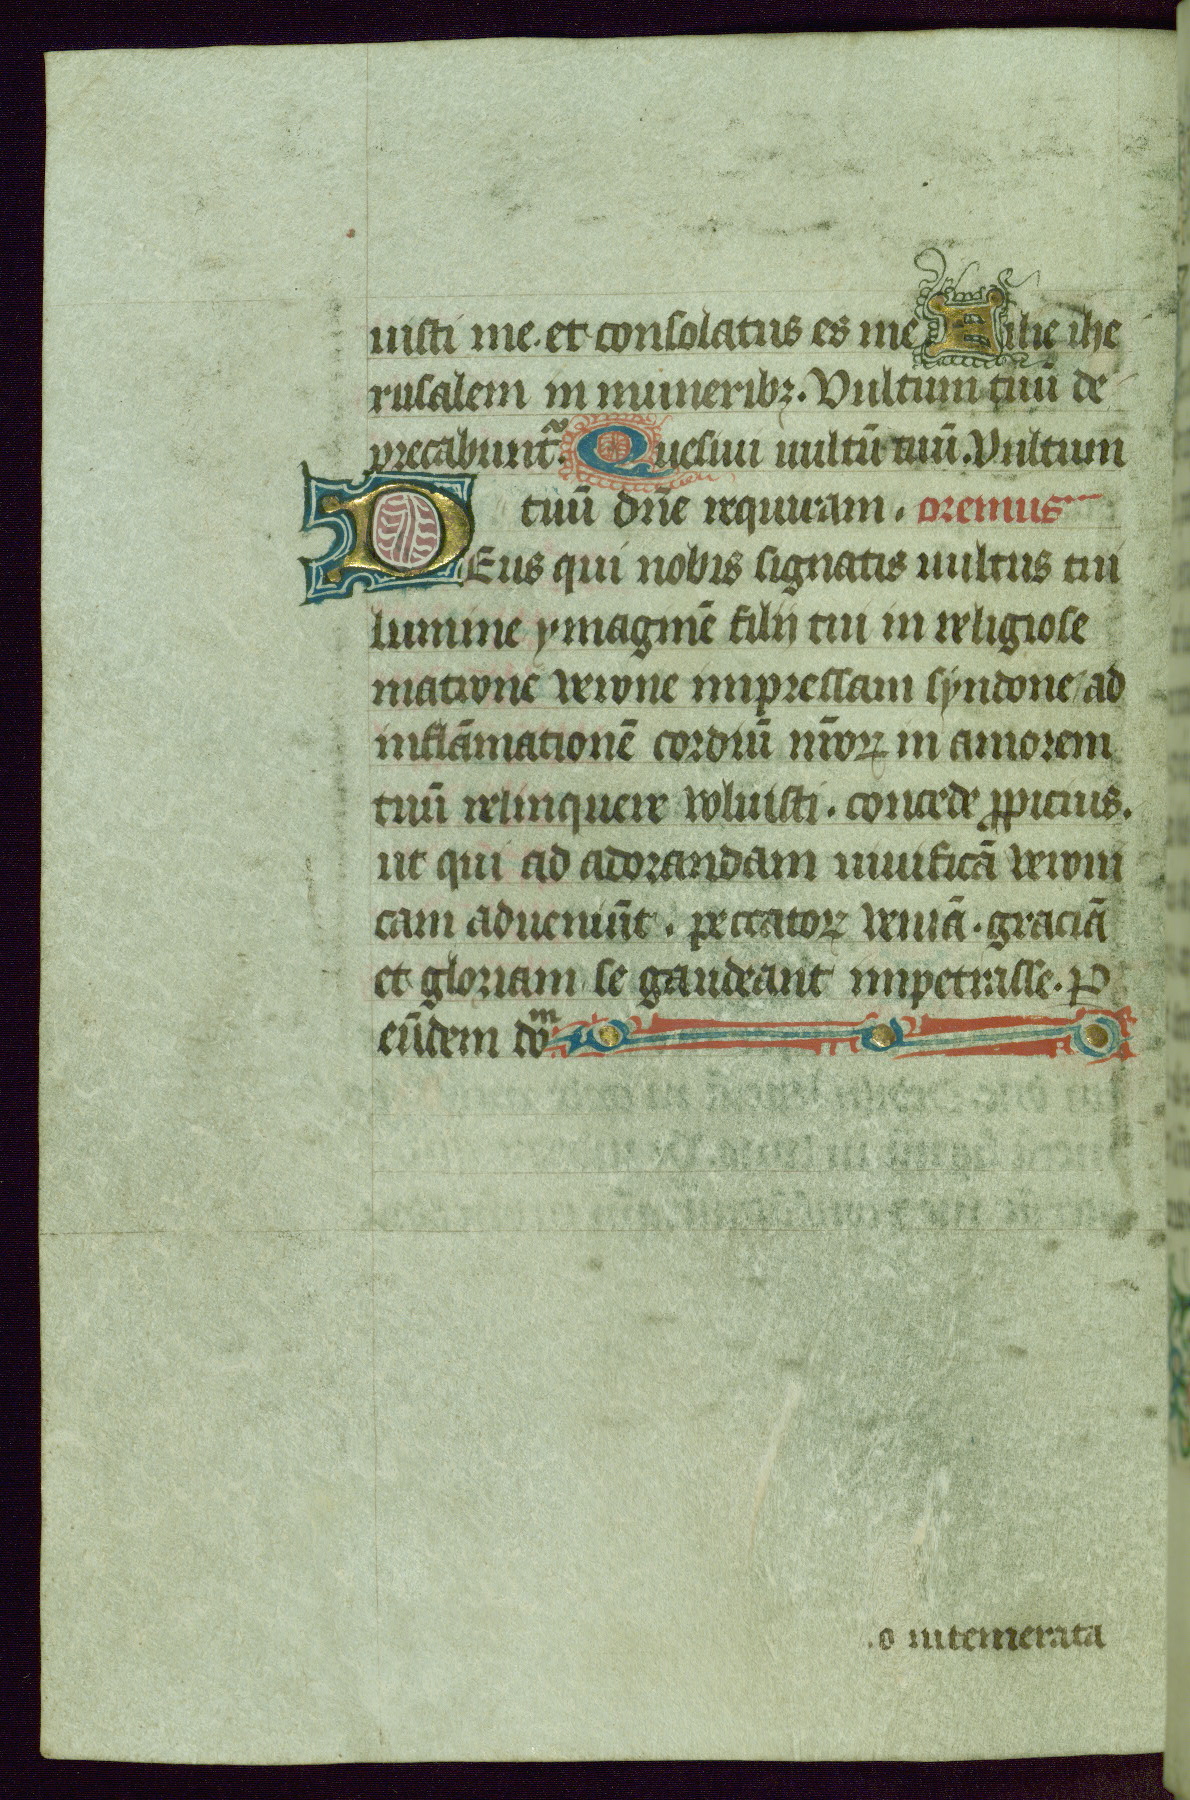 uisti me. et consolatus es me Filie ihe
rusalem in muneribꝫ. Vultum tuū de
precabunt᷑. Quesiui uultū tuū. Vultum
tuū dn̄e requiram. oremus
DEus qui nobis signatis uultus tui
lumine ymaginē filii tui in religiose
matrone veronice impressam syndone ad
inflāmationē cordiū nr̄oꝝ in amorem
tuū relinquere voluisti. concede ꝓpicius.
ut qui ad adorandam uiuificā veroni
cam adueniūt. peccatoꝝ veniā. graciā
et gloriam se gaudeant impetrasse. P
eūdem doᵐ
.o intemerata